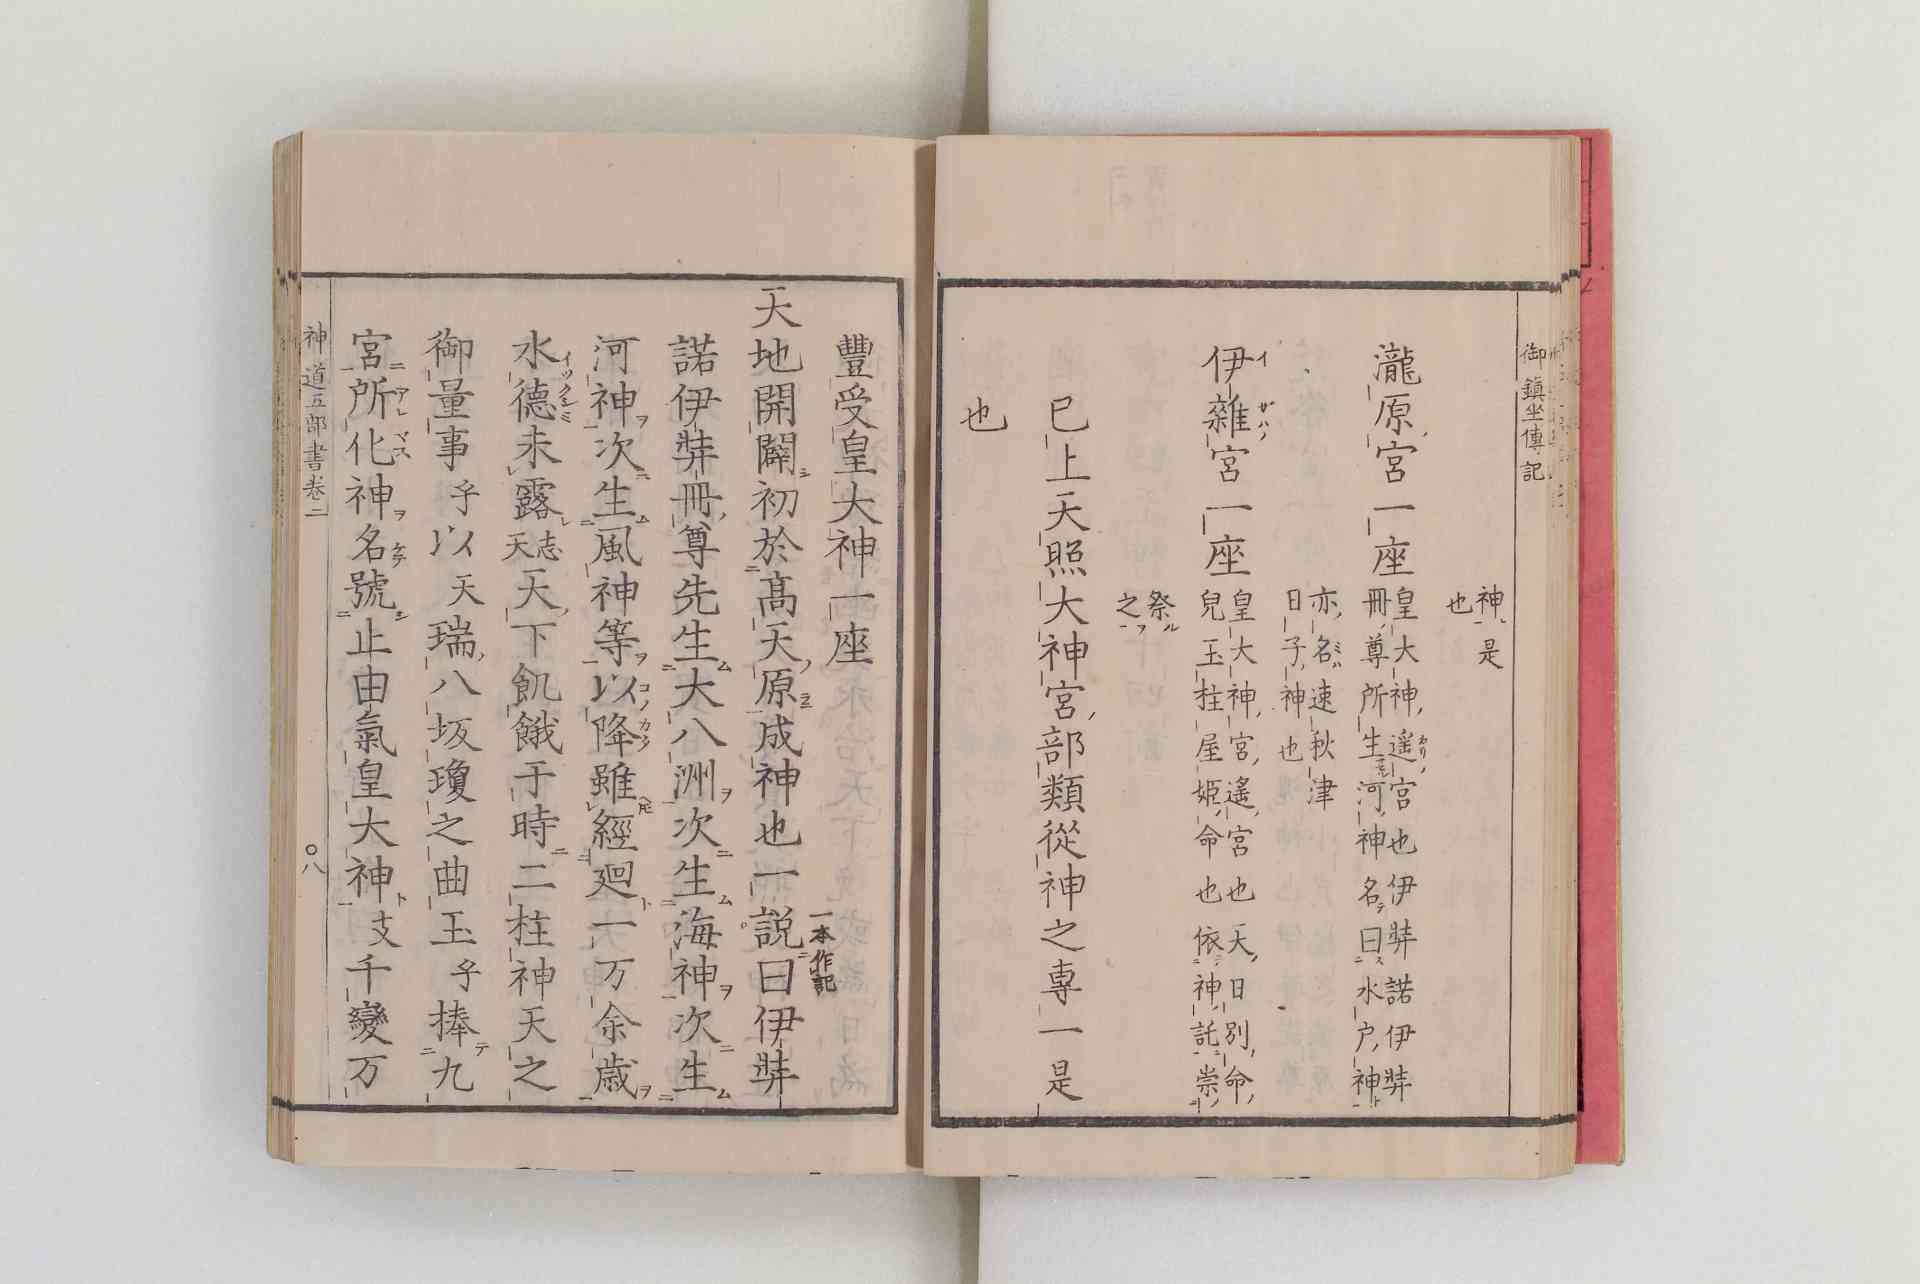 御鎮坐傳記
神是
也
瀧原宮一座
皇大神遥宮也伊弉諾伊弉
冊尊所生河神名曰水戸神
亦名速秋津
日子神也
伊雜宮一座
皇大神宮遥宮也天日別命
兒玉柱屋姫命也依神託崇
祭
之
已上天照大神宮部類從神之專一是
也
豐受皇大神一座
天地開闢初於高天原成神也一説曰伊弉
一本作記
諾伊弉冊尊先生大八洲次生海神次生
河神次生風神等以降雖經廻一万余歳
水德未露志天天下飢餓于時二柱神天之
御量事乎以天瑞八坂瓊之曲玉乎捧九
宮所化神名號止由氣皇大神支千變万
神道五部書卷二
〇八